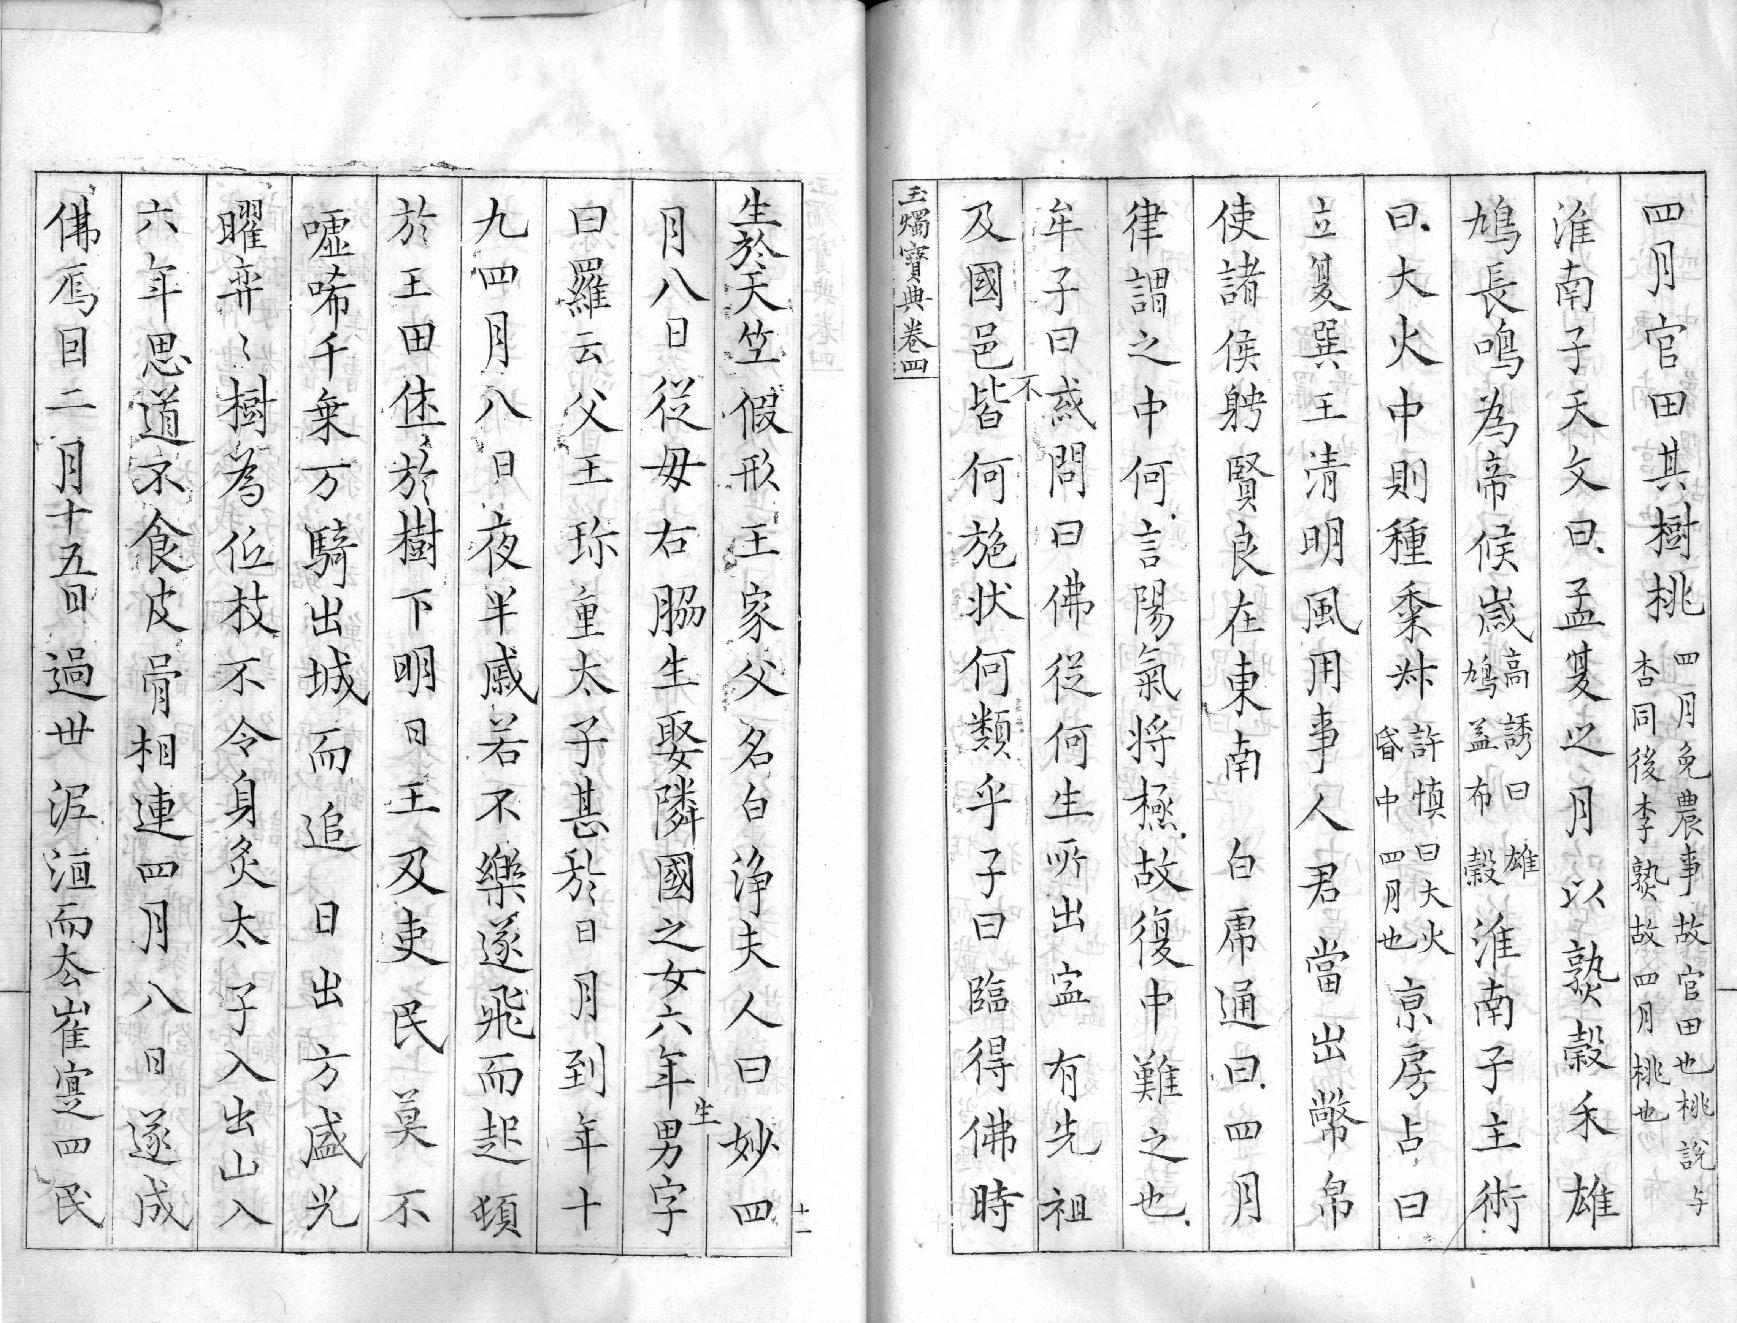 四月官田其樹桃四月免農事故官田也桃說与杏同後李熟故四月桃也
淮南子天文曰孟夏之月以熟穀禾雄
鳩長鳴為帝候歲高誘曰雄鳩盖布穀淮南子主術
曰大火中則種黍尗許慎曰大火昏中四月也京房占曰
立夏巽王清明風用事人君當出幣帛
使諸侯聘賢良在東南白虎通曰四月
律謂之中何言陽氣將極故復中難之也
牟子曰或問曰佛從何生所出寍有先祖
及國邑不皆何施状何類乎子曰臨得佛時
玉燭寶典卷四
十一
生於天竺假形王家父名白浄夫人曰妙四
月八日從母右脇生娶隣國之女六年生男字
曰羅云父王珎重太子甚於日月到年十
九四月八日夜半慼若不樂遂飛而起頓
於王田休於樹下明日王及吏民莫不
嘘唏千乗万騎出城而追日出方盛光
曜弈〻樹為低枝不令身炙太子入出山入
六年思道不食皮骨相連四月八日遂成
佛焉曰二月十五日過世泥洹而去崔寔四民